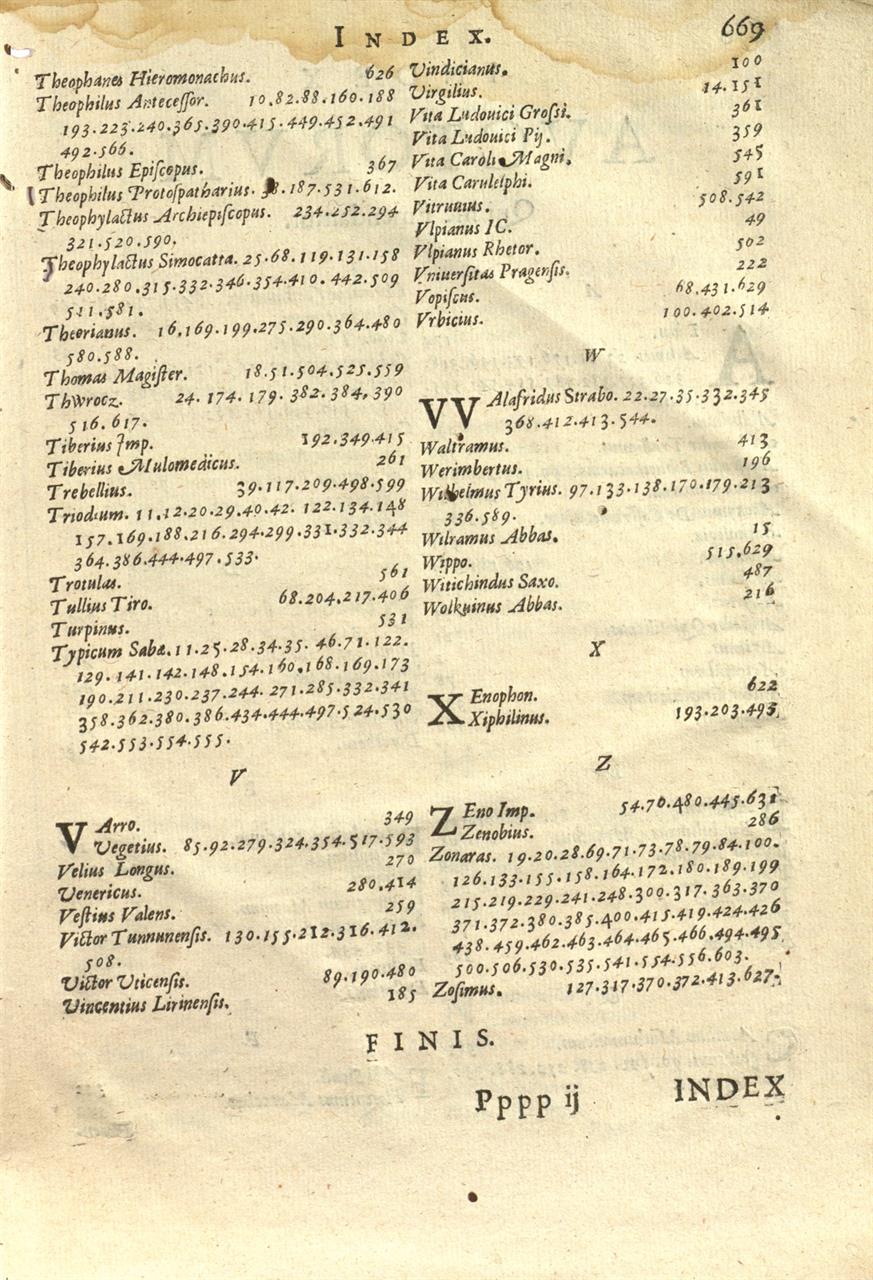 INDEX. 669
Theophanes Hieromonachus. 626
Theophilus Antecessor. 10.82.88.160.188
193.223.240.365.390.415.449.452.491
492.566.
Theophilus Episcopus. 367
Theophilus Protospatharius. 38.187.531.612.
Theophylactus Archiepiscopus. 234.252.294
321.520.590.
Theophylactus Simocatta. 25.68.119.131.158
240.280.315.332.346.354.410.442.509
511.581.
Theorianus. 16.169.199.275.290.364.480
580.588.
Thomas Magister. 18.51.504.525.559
Thwrocz. 24.174.179.382.384.390
516.617.
Tiberius Imp. 192.349.415
Tiberius Mulomedicus. 261
Trebellius. 39.117.209.498.599
Triodium. 11.12.20.29.40.42.122.134.148
157.169.188.216.294.299.331.332.344
364.386.444.497.533.
Trotulas. 561
Tullius Tiro. 68.204.217.406
Turpinus. 531
Typicum Sabæ. 11.25.28.34.35.46.71.122.
129.141.142.148.154.160.168.169.173
190.211.230.237.244.271.285.332.341
358.362.380.386.434.444.497.524.530
542.553.554.555.
V
VArro. 349
Vegetius. 85.92.279.324.354.517.593
Velius Longus. 270
Venericus. 280.414
Vestius Valens. 259
Victor Tunnunensis. 130.155.212.316.412.
508.
Victor Uticensis. 89.190.480
Vincentius Lirinensis. 185
Vindicianus. 100
Virgilius. 14.151
Vita Ludouici Grossi. 361
Vita Ludouici Pij. 359
Vita Caroli Magni. 545
Vita Carulelphi. 591
Vitruuius. 508.542
Vlpianus IC. 49
Vlpianus Rhetor. 502
Vniuersitas Pragensis. 222
Vopiscus. 68.431.629
Vrbicius. 100.402.514
W
VVAlafridus Strabo. 22.27.35.332.345
368.412.413.544.
Waltramus. 413
Werimbertus. 196
Wilhelmus Tyrius. 97.133.138.170.179.213
336.589.
Wilramus Abbas. 15
Wippo. 515.629
Witichindus Saxo. 487
Wolkuinus Abbas. 216
X
XEnophon. 622
Xiphilinus. 193.203.495
Z
ZEno Imp. 54.76.480.445.631
Zenobius. 286
Zonaras. 19.20.28.69.71.73.78.79.84.100.
126.133.155.158.164.172.180.189.199
215.219.229.241.248.300.317.363.370
371.372.380.385.400.415.419.424.426
438.459.462.463.464.465.466.494.495
500.506.530.535.541.554.556.603.
Zosimus. 127.317.370.372.413.627.
FINIS.
Pppp ij INDEX